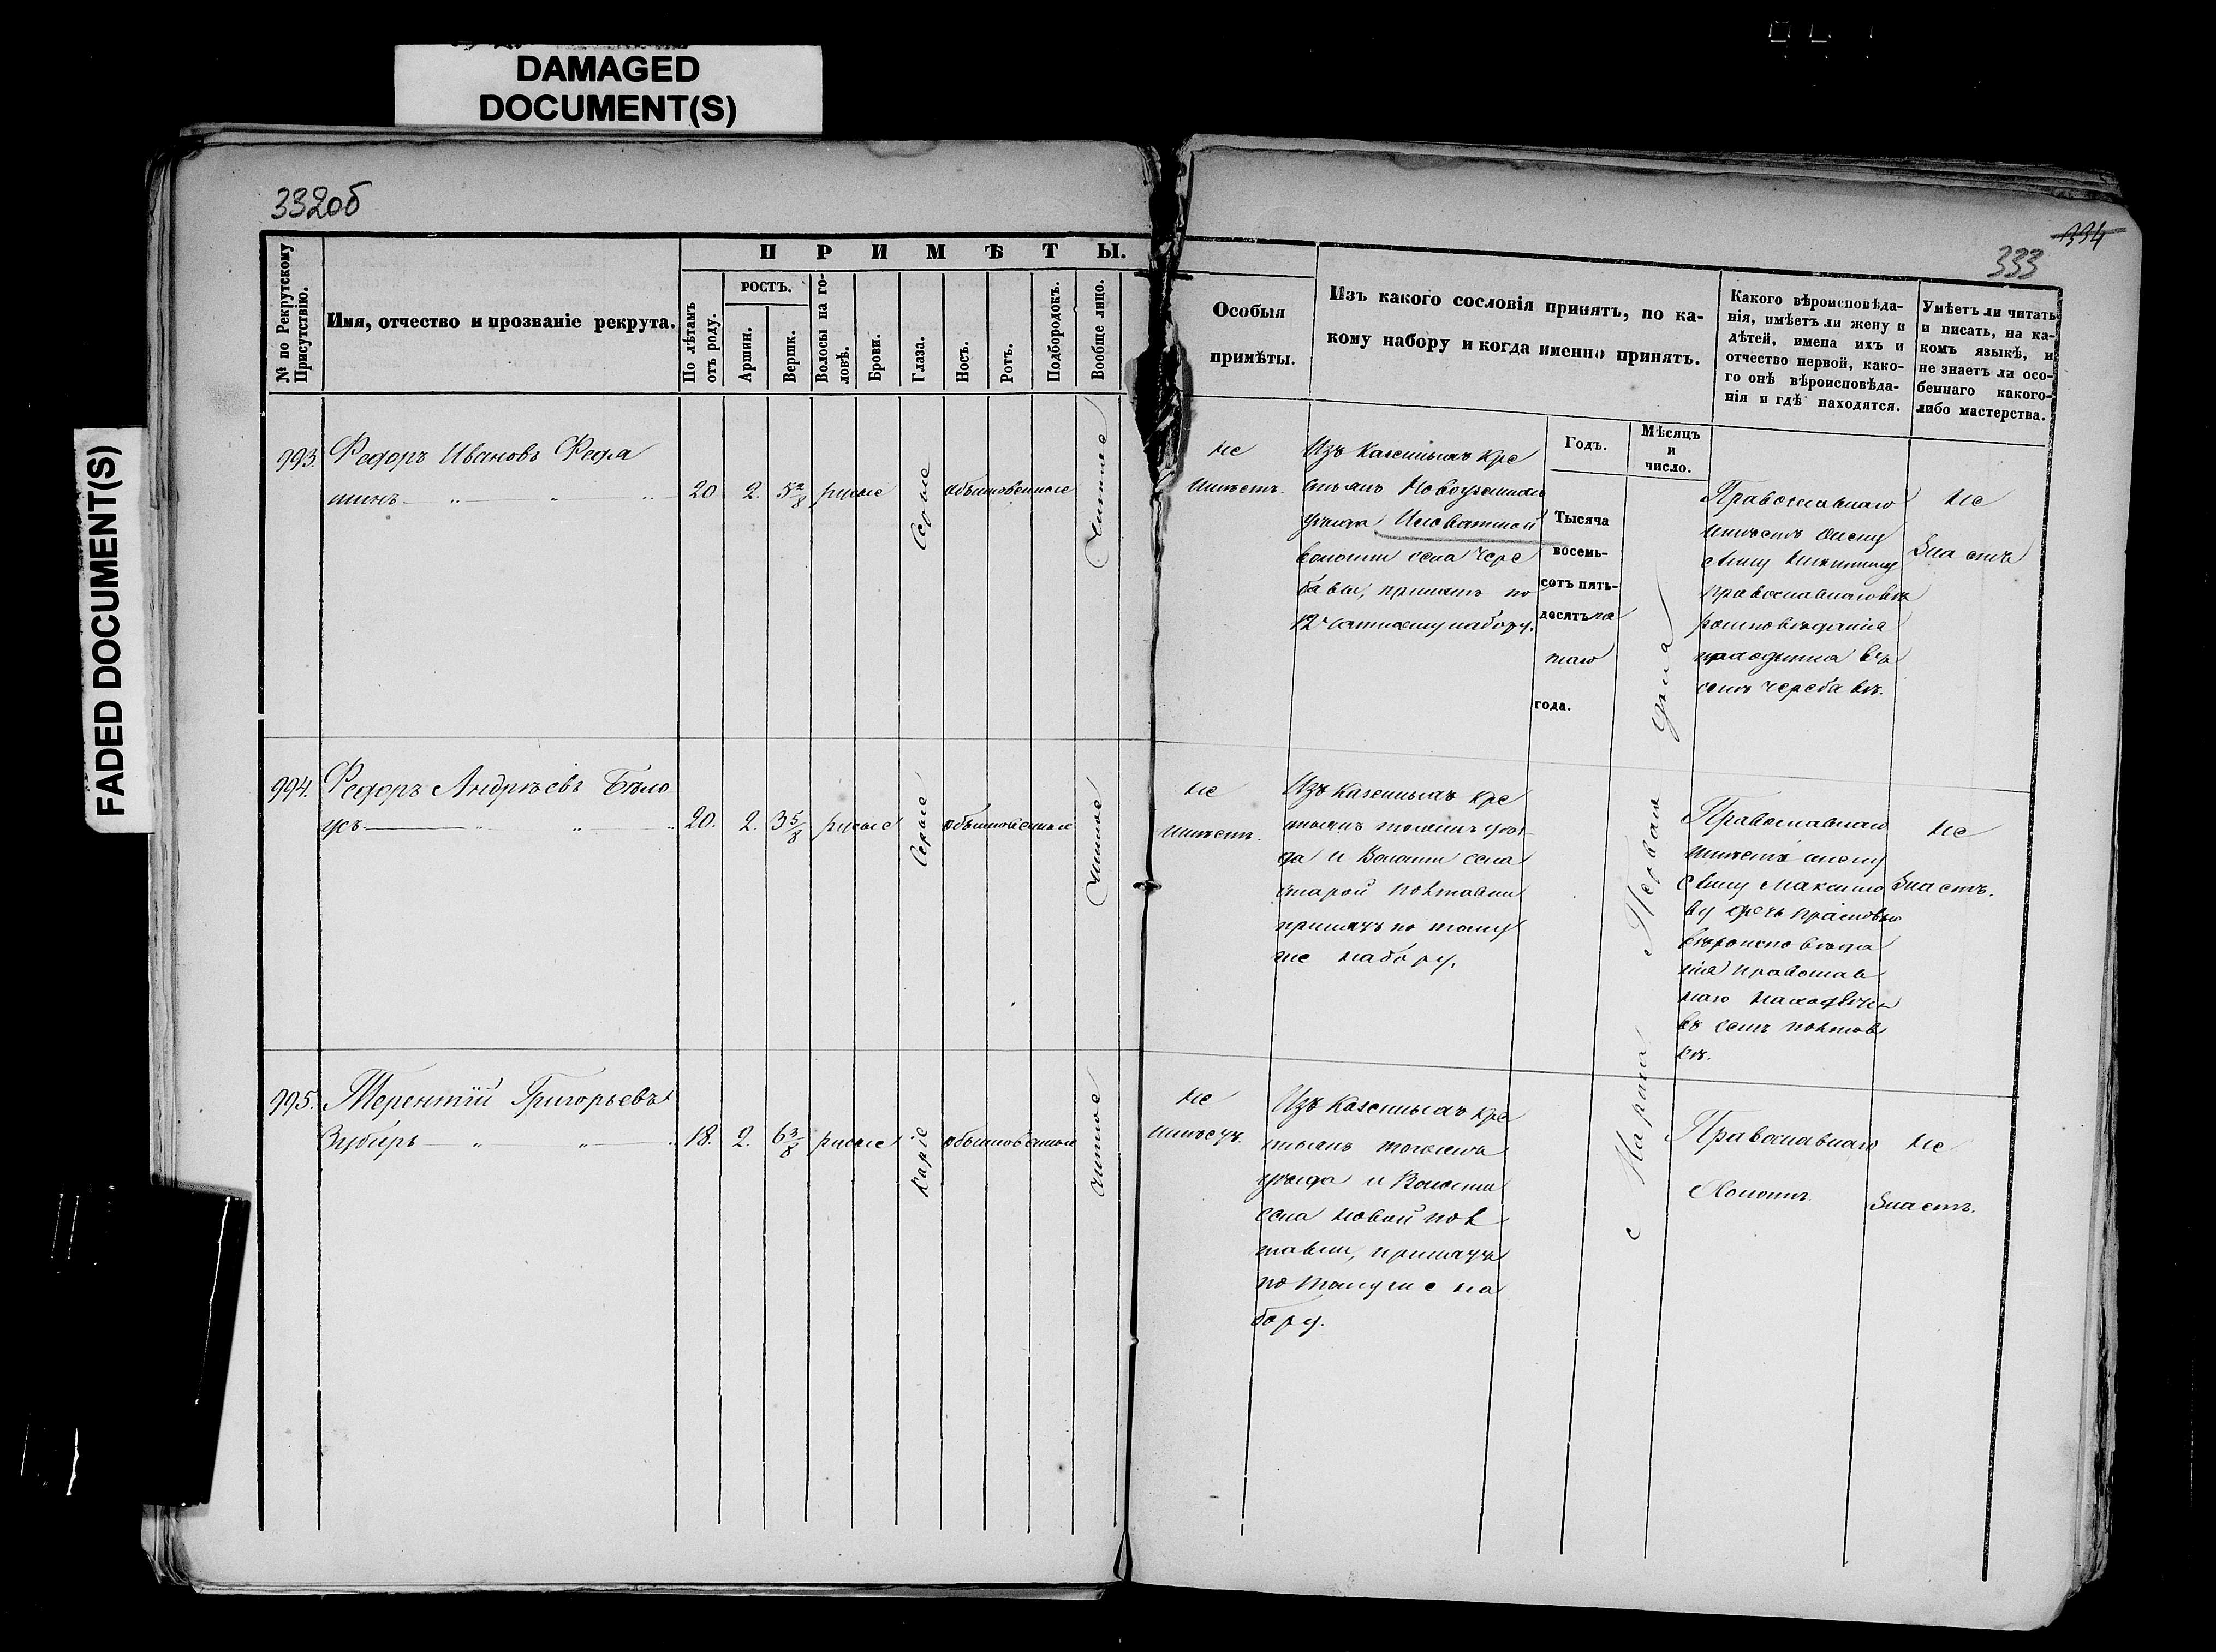 DAMAGED
DOCUMENT(S)
FADED DOCUMENT(S)
332об
334
333
№ по Рекрутскому
Присутствію.
Имя, отчество и прозваніе рекрута.
ПРИМѢТЫ.
По лѣтамъ
отъ роду.
РОСТЪ.
Аршин.
Вершк.
Волосы на го-
ловѣ.
Брови.
Глаза.
Носъ.
Ротъ.
Подбородокъ.
Вообще лицо.
Особыя
примѣты.
Изъ какого сословія принятъ, по ка-
кому набору и когда именно принятъ.
Годъ.
Мѣсяцъ
и
число.
Какого вѣроисповѣда-
нія, имѣетъ ли жену и
дѣтей, имена ихъ и
отчество первой, како-
го онѣ вѣроисповѣда-
нія и гдѣ находятся.
Умѣетъ ли читать
и писать, на ка-
комъ языкѣ, и
не знаетъ ли осо-
беннаго какого-
либо мастерства.
993. Федоръ Ивановъ Федя
шинъ
20 2. 5 2/8 русые Серые обыкновенные Чистое
не
имѣетъ.
Изъ казенныхъ кре
стьянъ Новоузенскаго
уѣзда Иловатской
волости села Чере
баева, принятъ по
12 частному набору.
Тысяча
восемь-
сотъ пять-
десятъ пя
таго
года.
Марта Перваго дня
Православнаго
имѣетъ жену
Анну Никитину
православнаго вѣ
роисповѣданія
находится въ
селѣ Черебаевѣ.
не
знаетъ
994. Федоръ Андреевъ Бѣло
усъ
20. 2. 3 5/8 русые Серые обыкновенные Чистое
не
имѣетъ.
Изъ казенныхъ кре
стьянъ тогожъ уѣз-
да и Волости села
старой Полтавки
принятъ по тому
же набору.
Православнаго
имѣетъ жену
Анну Максимо
ву дочь Прасковью
вѣроисповѣда
нія православ
наго находятся
въ селѣ Полтав
кѣ.
не
знаетъ.
995. Терентій Григорьевъ
Зубирь
18. 2. 6 3/8 русые Каріе обыкновенные чистое
не
имѣетъ.
Изъ казенныхъ кре
стьянъ тогожъ
уѣзда и Волости
села новой Пол
тавки, принятъ
по томуже на
бору.
Православнаго
Холостъ.
не
знаетъ.